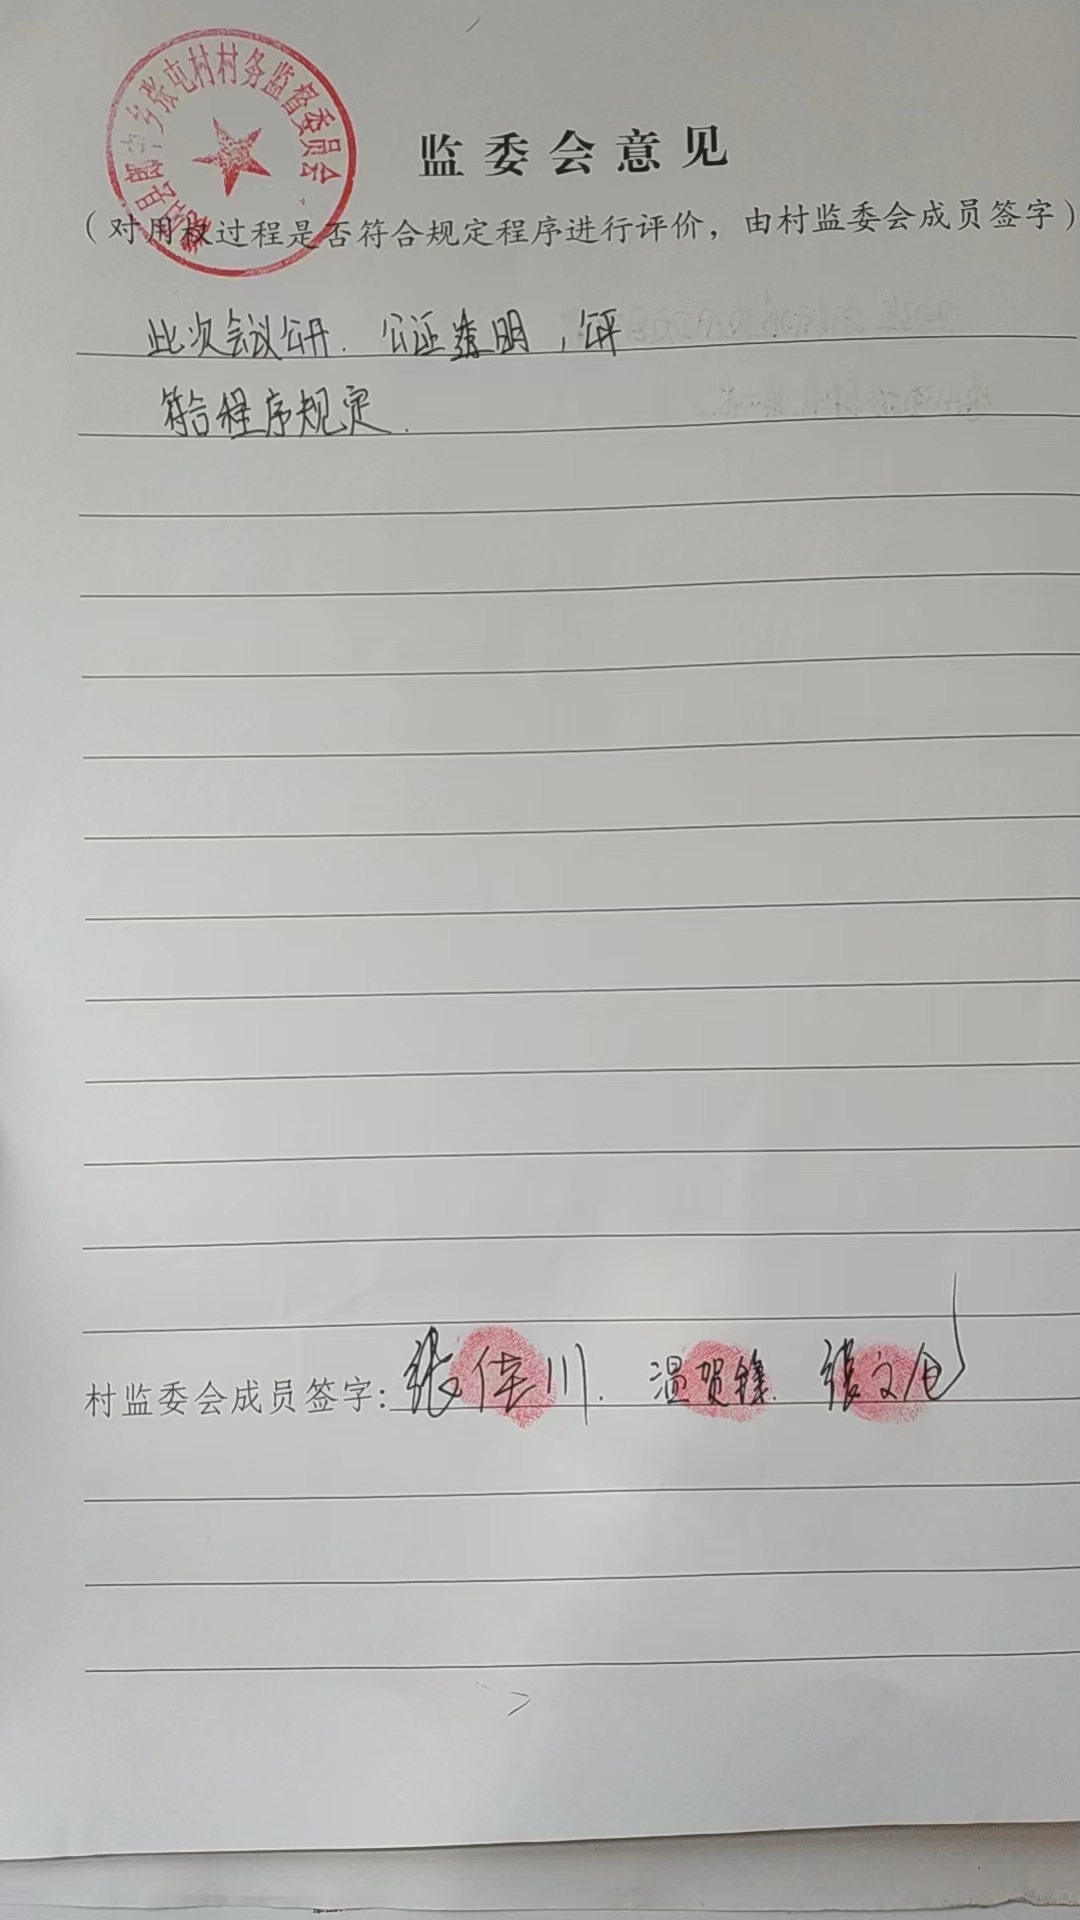 乡张屯村村务监督委员会
监委会意见
（对用权过程是否符合规定程序进行评价，由村监委会成员签字）
此次会议公开. 公证透明，公平
符合程序规定.
村监委会成员签字: 张佳川. 温贺锋. 张文仓